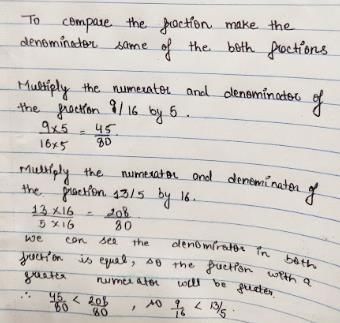 To compare the fraction make the
denominator same of the both fractions
Multiply the numerator and denominator of
the fraction 9/16 by 5.
9x5/16x5 = 45/80
Multiply the numerator and denominator of
the fraction 13/5 by 16.
13x16/5x16 = 208/80
we can see the denominator in both
fraction is equal, so the fraction with a
greater numerator will be greater.
∴ 45/80 < 208/80 , so 9/16 < 13/5.